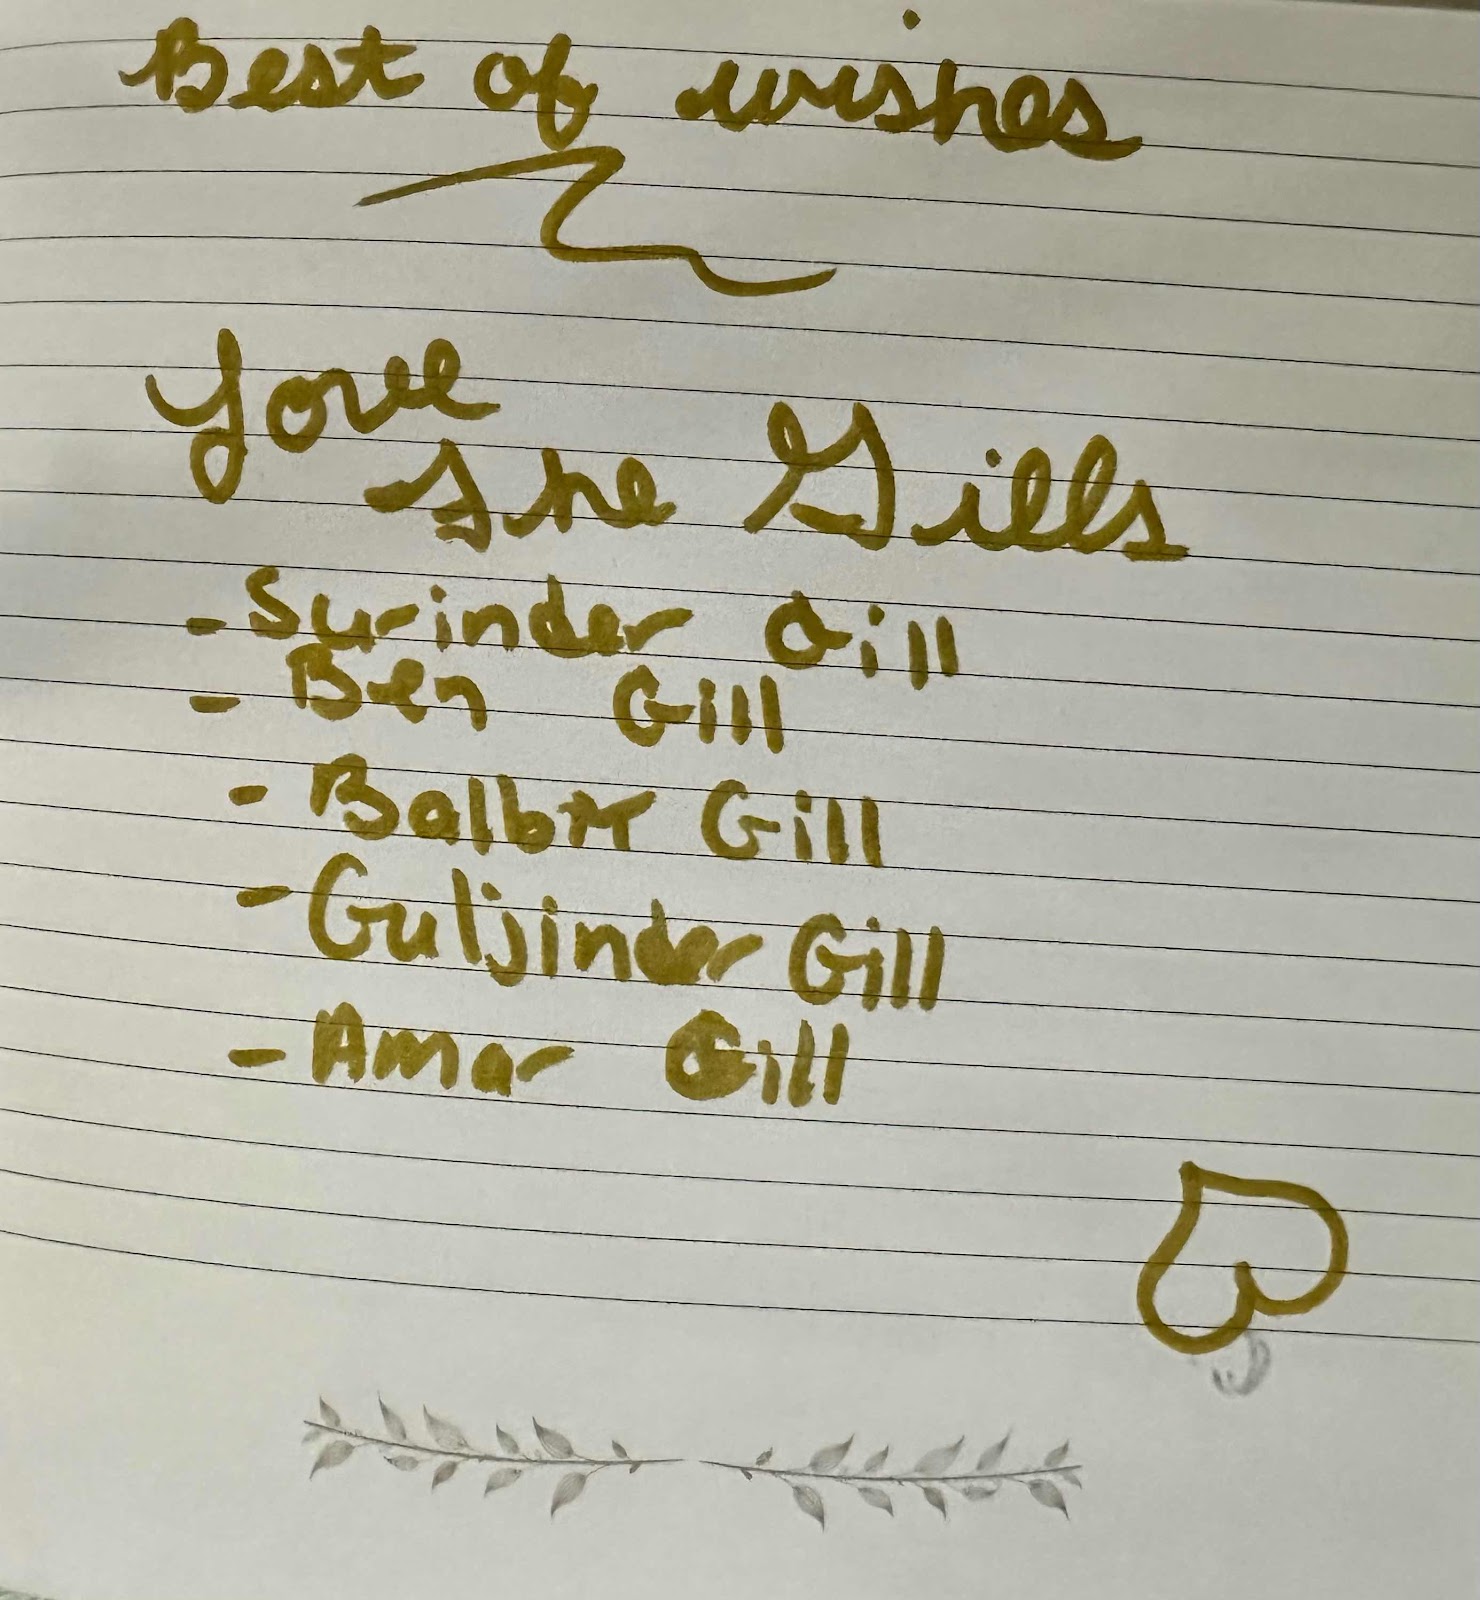 Best of wishes
Love
The Gills
- Surinder Gill
- Ben Gill
- Balbir Gill
- Guljinder Gill
- Amar Gill